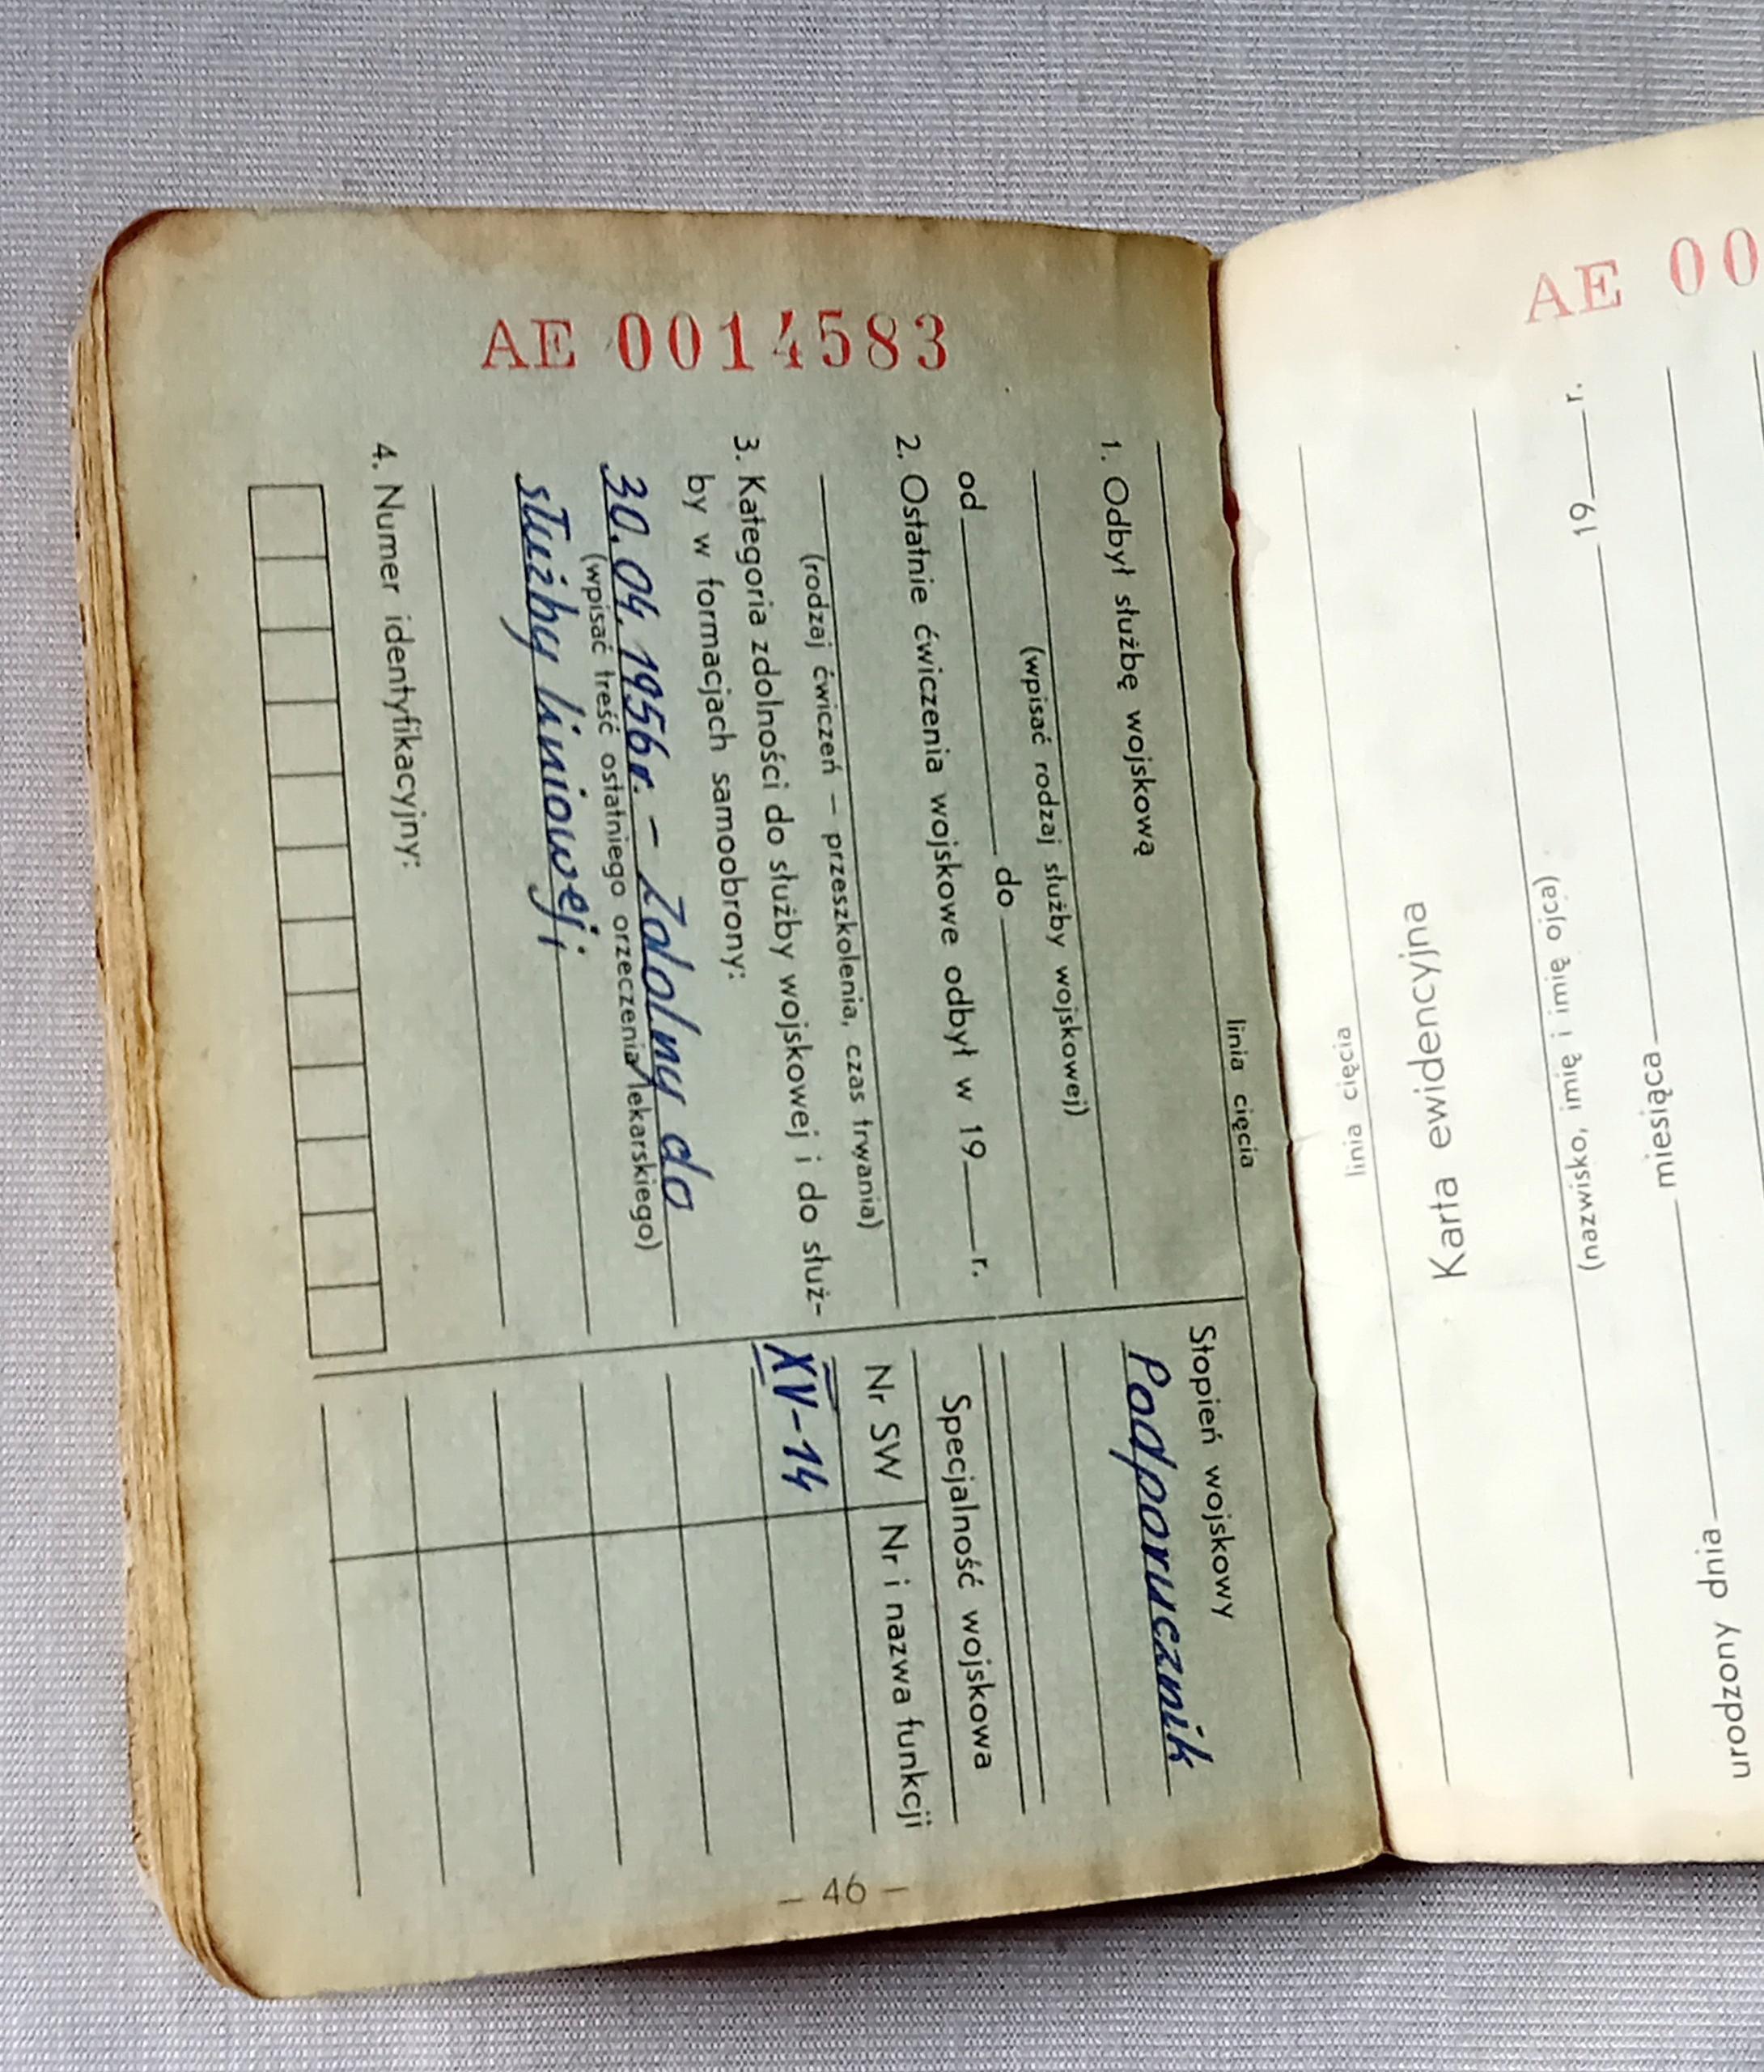 AE 0014583
linia cięcia
1. Odbył służbę wojskową
(wpisać rodzaj służby wojskowej)
2. Ostatnie ćwiczenia wojskowe odbył w 19 r.
od do
(rodzaj ćwiczeń – przeszkolenia, czas trwania)
3. Kategoria zdolności do służby wojskowej i do służ-
by w formacjach samoobrony:
30.04.1956r. – Zdolny do
(wpisać treść ostatniego orzeczenia lekarskiego)
służby liniowej;
4. Numer identyfikacyjny:
Stopień wojskowy
Podporucznik
Specjalność wojskowa
Nr SW Nr i nazwa funkcji
XV-14
– 46 –
AE 00
linia cięcia
Karta ewidencyjna
(nazwisko, imię i imię ojca)
19 r.
urodzony dnia miesiąca